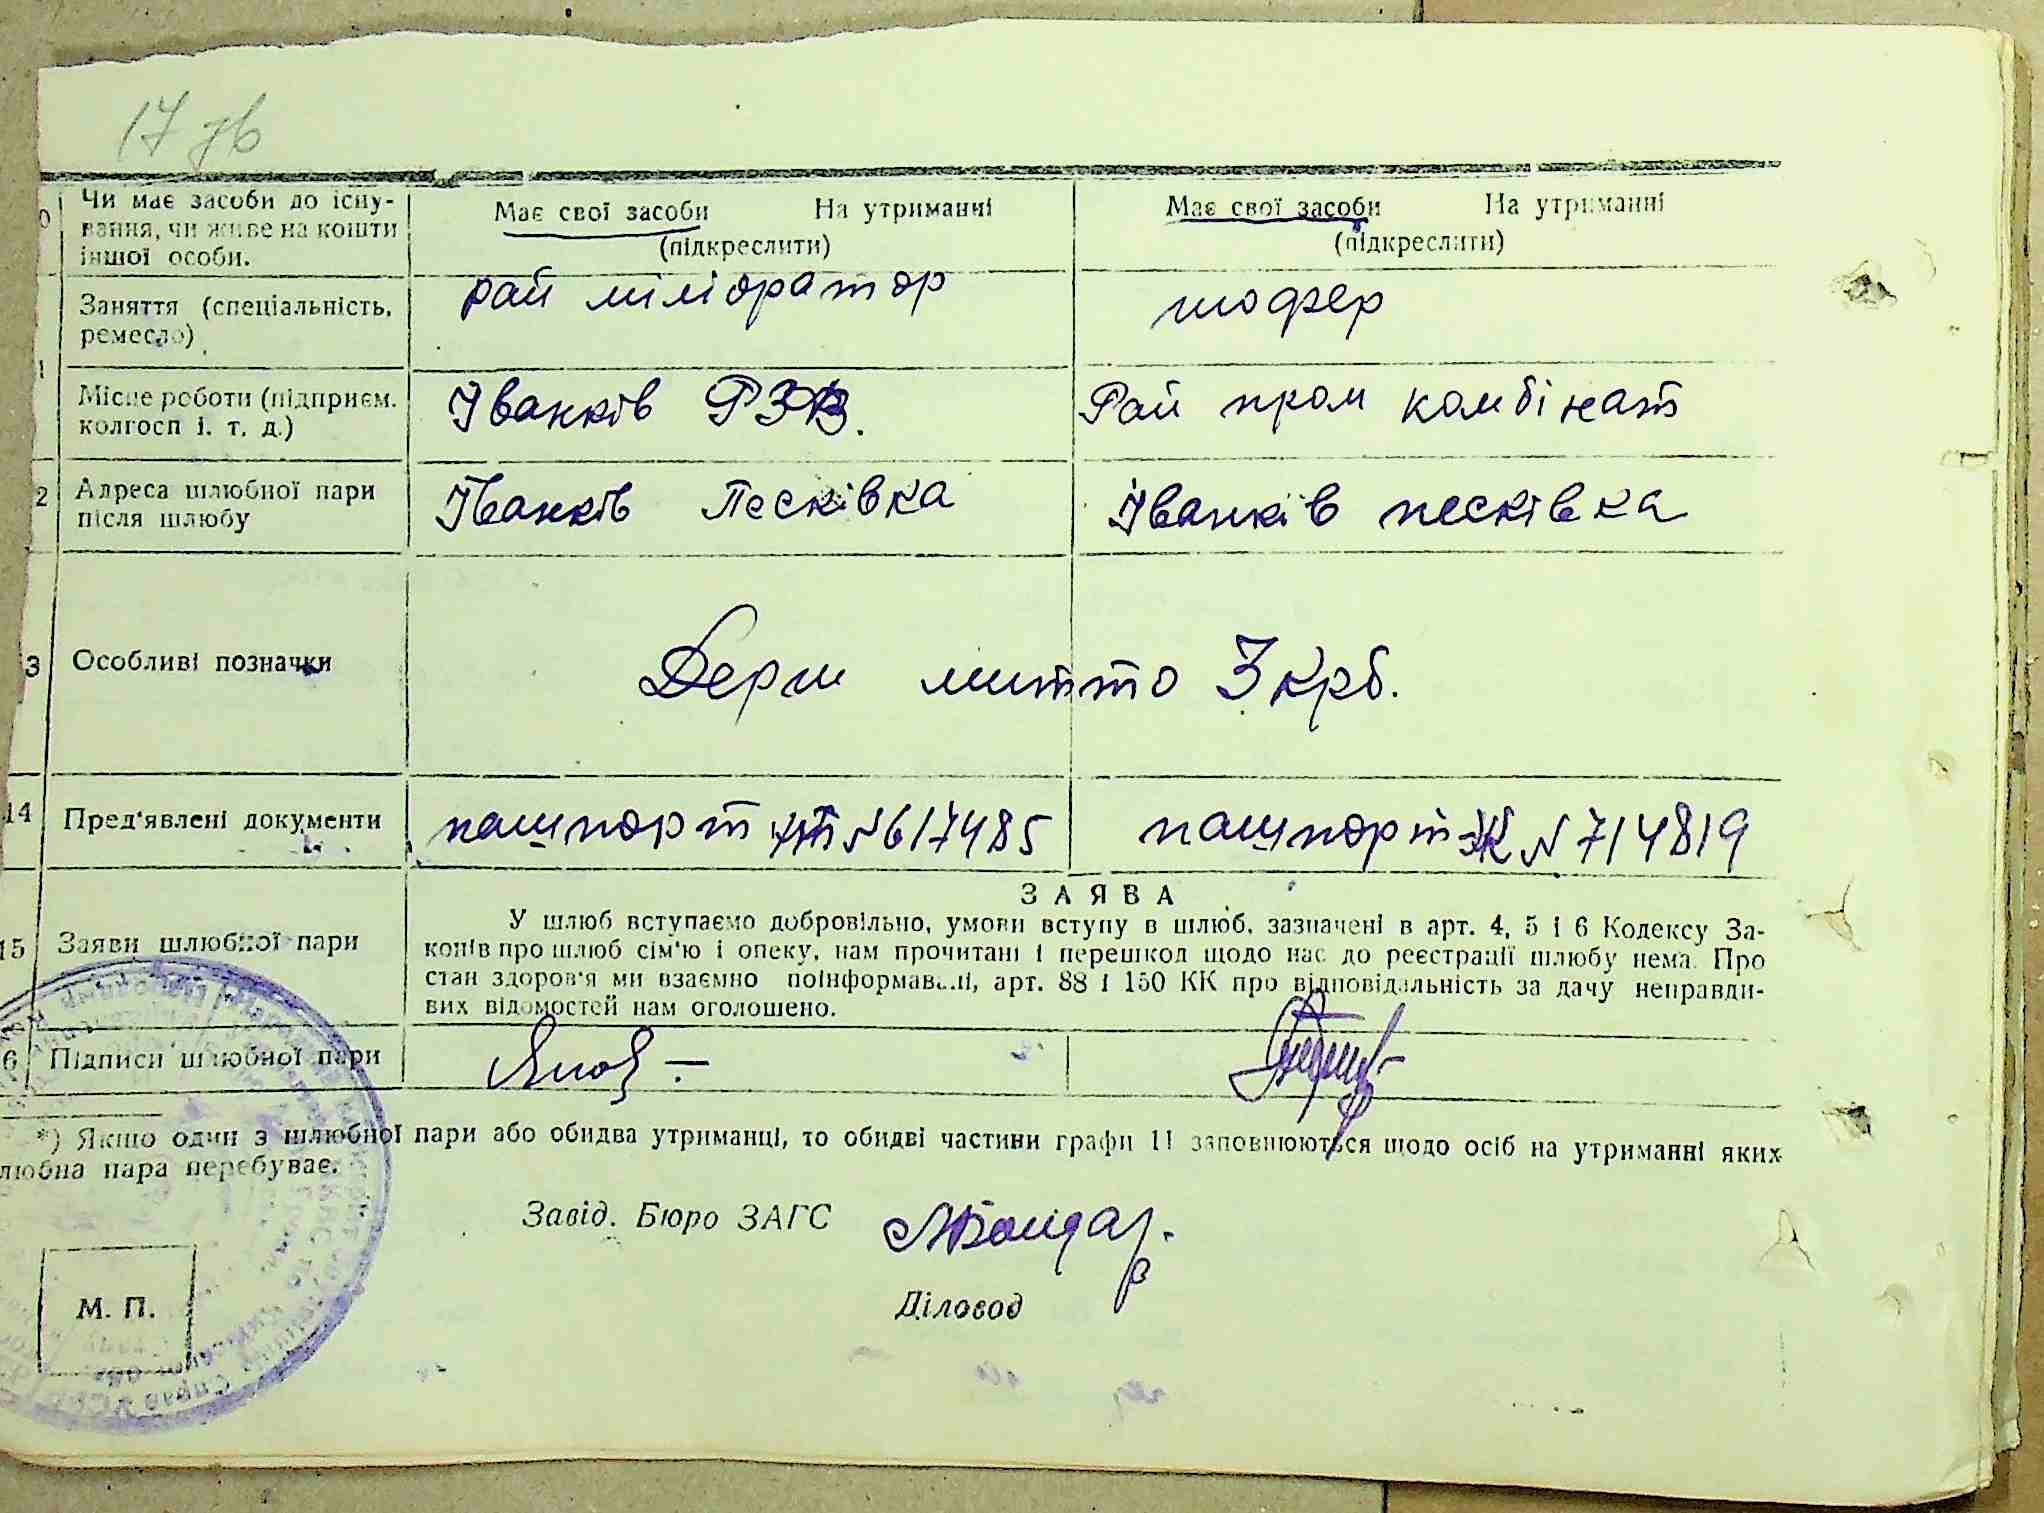 17 зв
0 Чи має засоби до існу- Має свої засоби На утриманні Має свої засоби На утриманні
вання, чи живе на кошти (підкреслити) (підкреслити)
іншої особи.
Заняття (спеціальність, рай міліоратор шофер
ремесло)
1
Місце роботи (підприєм. Іванків РЗВ. Рай пром комбінат
колгосп і. т. д.)
2 Адреса шлюбної пари Іванків Песківка Іванків песківка
після шлюбу
3 Особливі позначки Держ митто 3 крб.
14 Пред'явлені документи пашпорт № 617485 пашпорт ЖК № 714819
ЗАЯВА
У шлюб вступаємо добровільно, умови вступу в шлюб, зазначені в арт. 4, 5 і 6 Кодексу За-
15 Заяви шлюбної пари конів про шлюб сім'ю і опеку, нам прочитані і перешкод щодо нас до реєстрації шлюбу нема. Про
стан здоров'я ми взаємно поінформавалі, арт. 88 і 150 КК про відповідальність за дачу неправди-
вих відомостей нам оголошено.
6 Підписи шлюбної пари
*) Якщо один з шлюбної пари або обидва утриманці, то обидві частини графи 11 заповнюються щодо осіб на утриманні яких
любна пара перебуває.
Завід. Бюро ЗАГС МБондар.
Діловод
М. П.